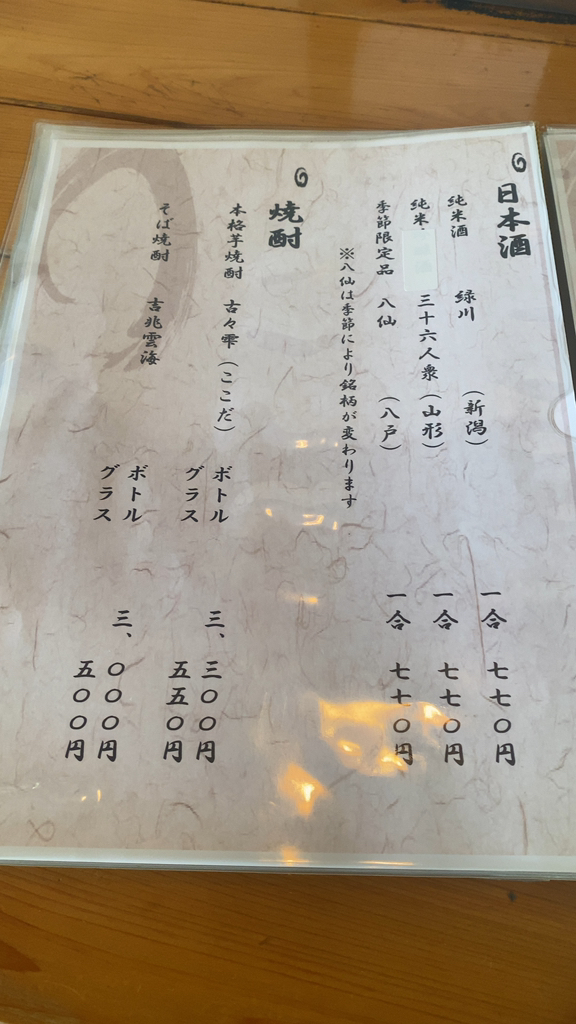 日本酒
純米酒 緑川 (新潟) 一合 七七〇円
純米 三十六人衆 (山形) 一合 七七〇円
季節限定品 八仙 (八戸) 一合 七七〇円
※八仙は季節により銘柄が変わります
焼酎
本格芋焼酎 古々雫 (ここだ) ボトル 三、三〇〇円
グラス 五五〇円
そば焼酎 吉兆雲海 ボトル 三、〇〇〇円
グラス 五〇〇円